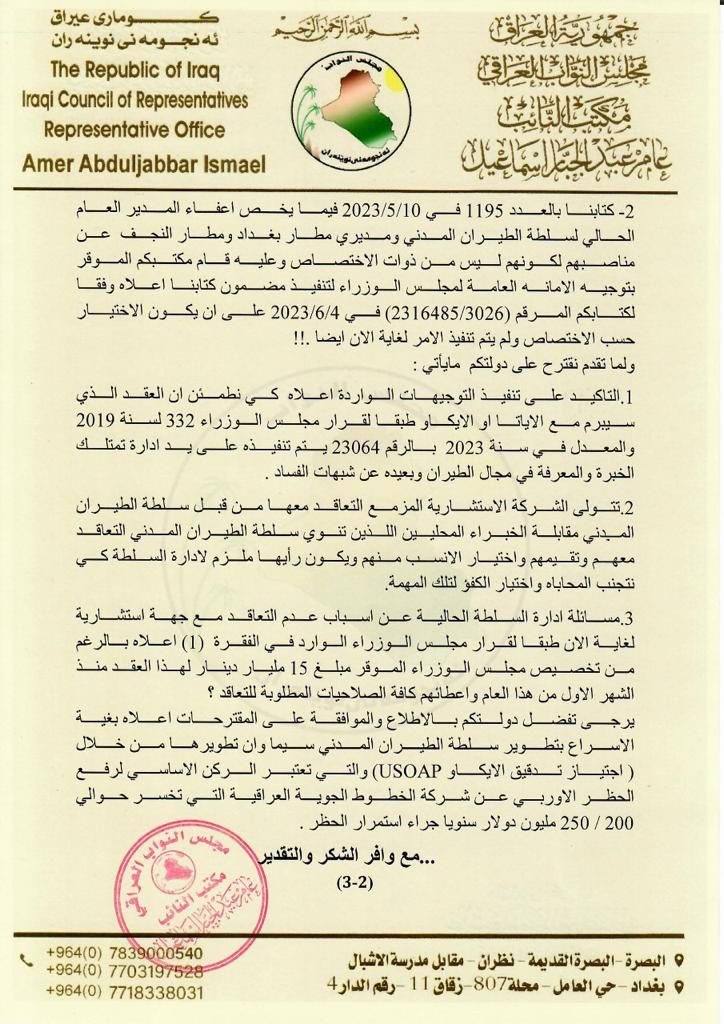 كـــوماری عیراق
ئه نجومه نی نوینه ران
The Republic of Iraq
Iraqi Council of Representatives
Representative Office
Amer Abduljabbar Ismael
بسم الله الرحمن الرحيم
مجلس النواب
جمهورية العراق
مجلس النواب العراقي
مكتب النائب
عامر عبد الجبار اسماعيل
2- كتابنا بالعدد 1195 في 2023/5/10 فيما يخص اعفاء المدير العام
الحالي لسلطة الطيران المدني ومديري مطار بغداد ومطار النجف عن
مناصبهم لكونهم ليس من ذوات الاختصاص وعليه قام مكتبكم الموقر
بتوجيه الامانه العامة لمجلس الوزراء لتنفيذ مضمون كتابنا اعلاه وفقا
لكتابكم المرقم (2316485/3026) في 2023/6/4 على ان يكون الاختيار
حسب الاختصاص ولم يتم تنفيذ الامر لغاية الان ايضا .!!
ولما تقدم نقترح على دولتكم مايأتي :
1.التاكيد على تنفيذ التوجيهات الواردة اعلاه كي نطمئن ان العقد الذي
سيبرم مع الاياتا او الايكاو طبقا لقرار مجلس الوزراء 332 لسنة 2019
والمعدل في سنة 2023 بالرقم 23064 يتم تنفيذه على يد ادارة تمتلك
الخبرة والمعرفة في مجال الطيران وبعيده عن شبهات الفساد .
2.تتولى الشركة الاستشارية المزمع التعاقد معها من قبل سلطة الطيران
المدني مقابلة الخبراء المحليين اللذين تنوي سلطة الطيران المدني التعاقد
معهم وتقيمهم واختيار الانسب منهم ويكون رأيها ملزم لادارة السلطة كي
نتجنب المحاباه واختيار الكفؤ لتلك المهمة.
3.مسائلة ادارة السلطة الحالية عن اسباب عدم التعاقد مع جهة استشارية
لغاية الان طبقا لقرار مجلس الوزراء الوارد في الفقرة (1) اعلاه بالرغم
من تخصيص مجلس الوزراء الموقر مبلغ 15 مليار دينار لهذا العقد منذ
الشهر الاول من هذا العام واعطائهم كافة الصلاحيات المطلوبة للتعاقد ؟
يرجى تفضل دولتكم بالاطلاع والموافقة على المقترحات اعلاه بغية
الاسراع بتطوير سلطة الطيران المدني سيما وان تطويرها من خلال
( اجتياز تدقيق الايكاو USOAP) والتي تعتبر الركن الاساسي لرفع
الحظر الاوربي عن شركة الخطوط الجوية العراقية التي تخسر حوالي
200 / 250 مليون دولار سنويا جراء استمرار الحظر .
...مع وافر الشكر والتقدير
(3-2)
مجلس النواب العراقي
مكتب النائب
عامر عبد الجبار اسماعيل
+964(0) 7839000540
+964(0) 7703197528
+964(0) 7718338031
البصرة - البصرة القديمة - نظران - مقابل مدرسة الاشبال
بغداد - حي العامل - محلة 807 - زقاق 11 - رقم الدار 4